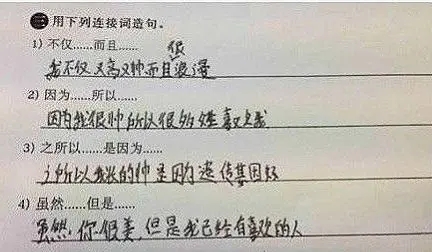 三 用下列连接词造句。
1) 不仅……而且……
很
我不仅又高又帅而且浪漫
2) 因为……所以……
因为我很帅所以很多女生喜欢上我
3) 之所以……是因为……
之所以我长的帅是因为遗传基因好
4) 虽然……但是……
虽然你很美,但是我已经有喜欢的人